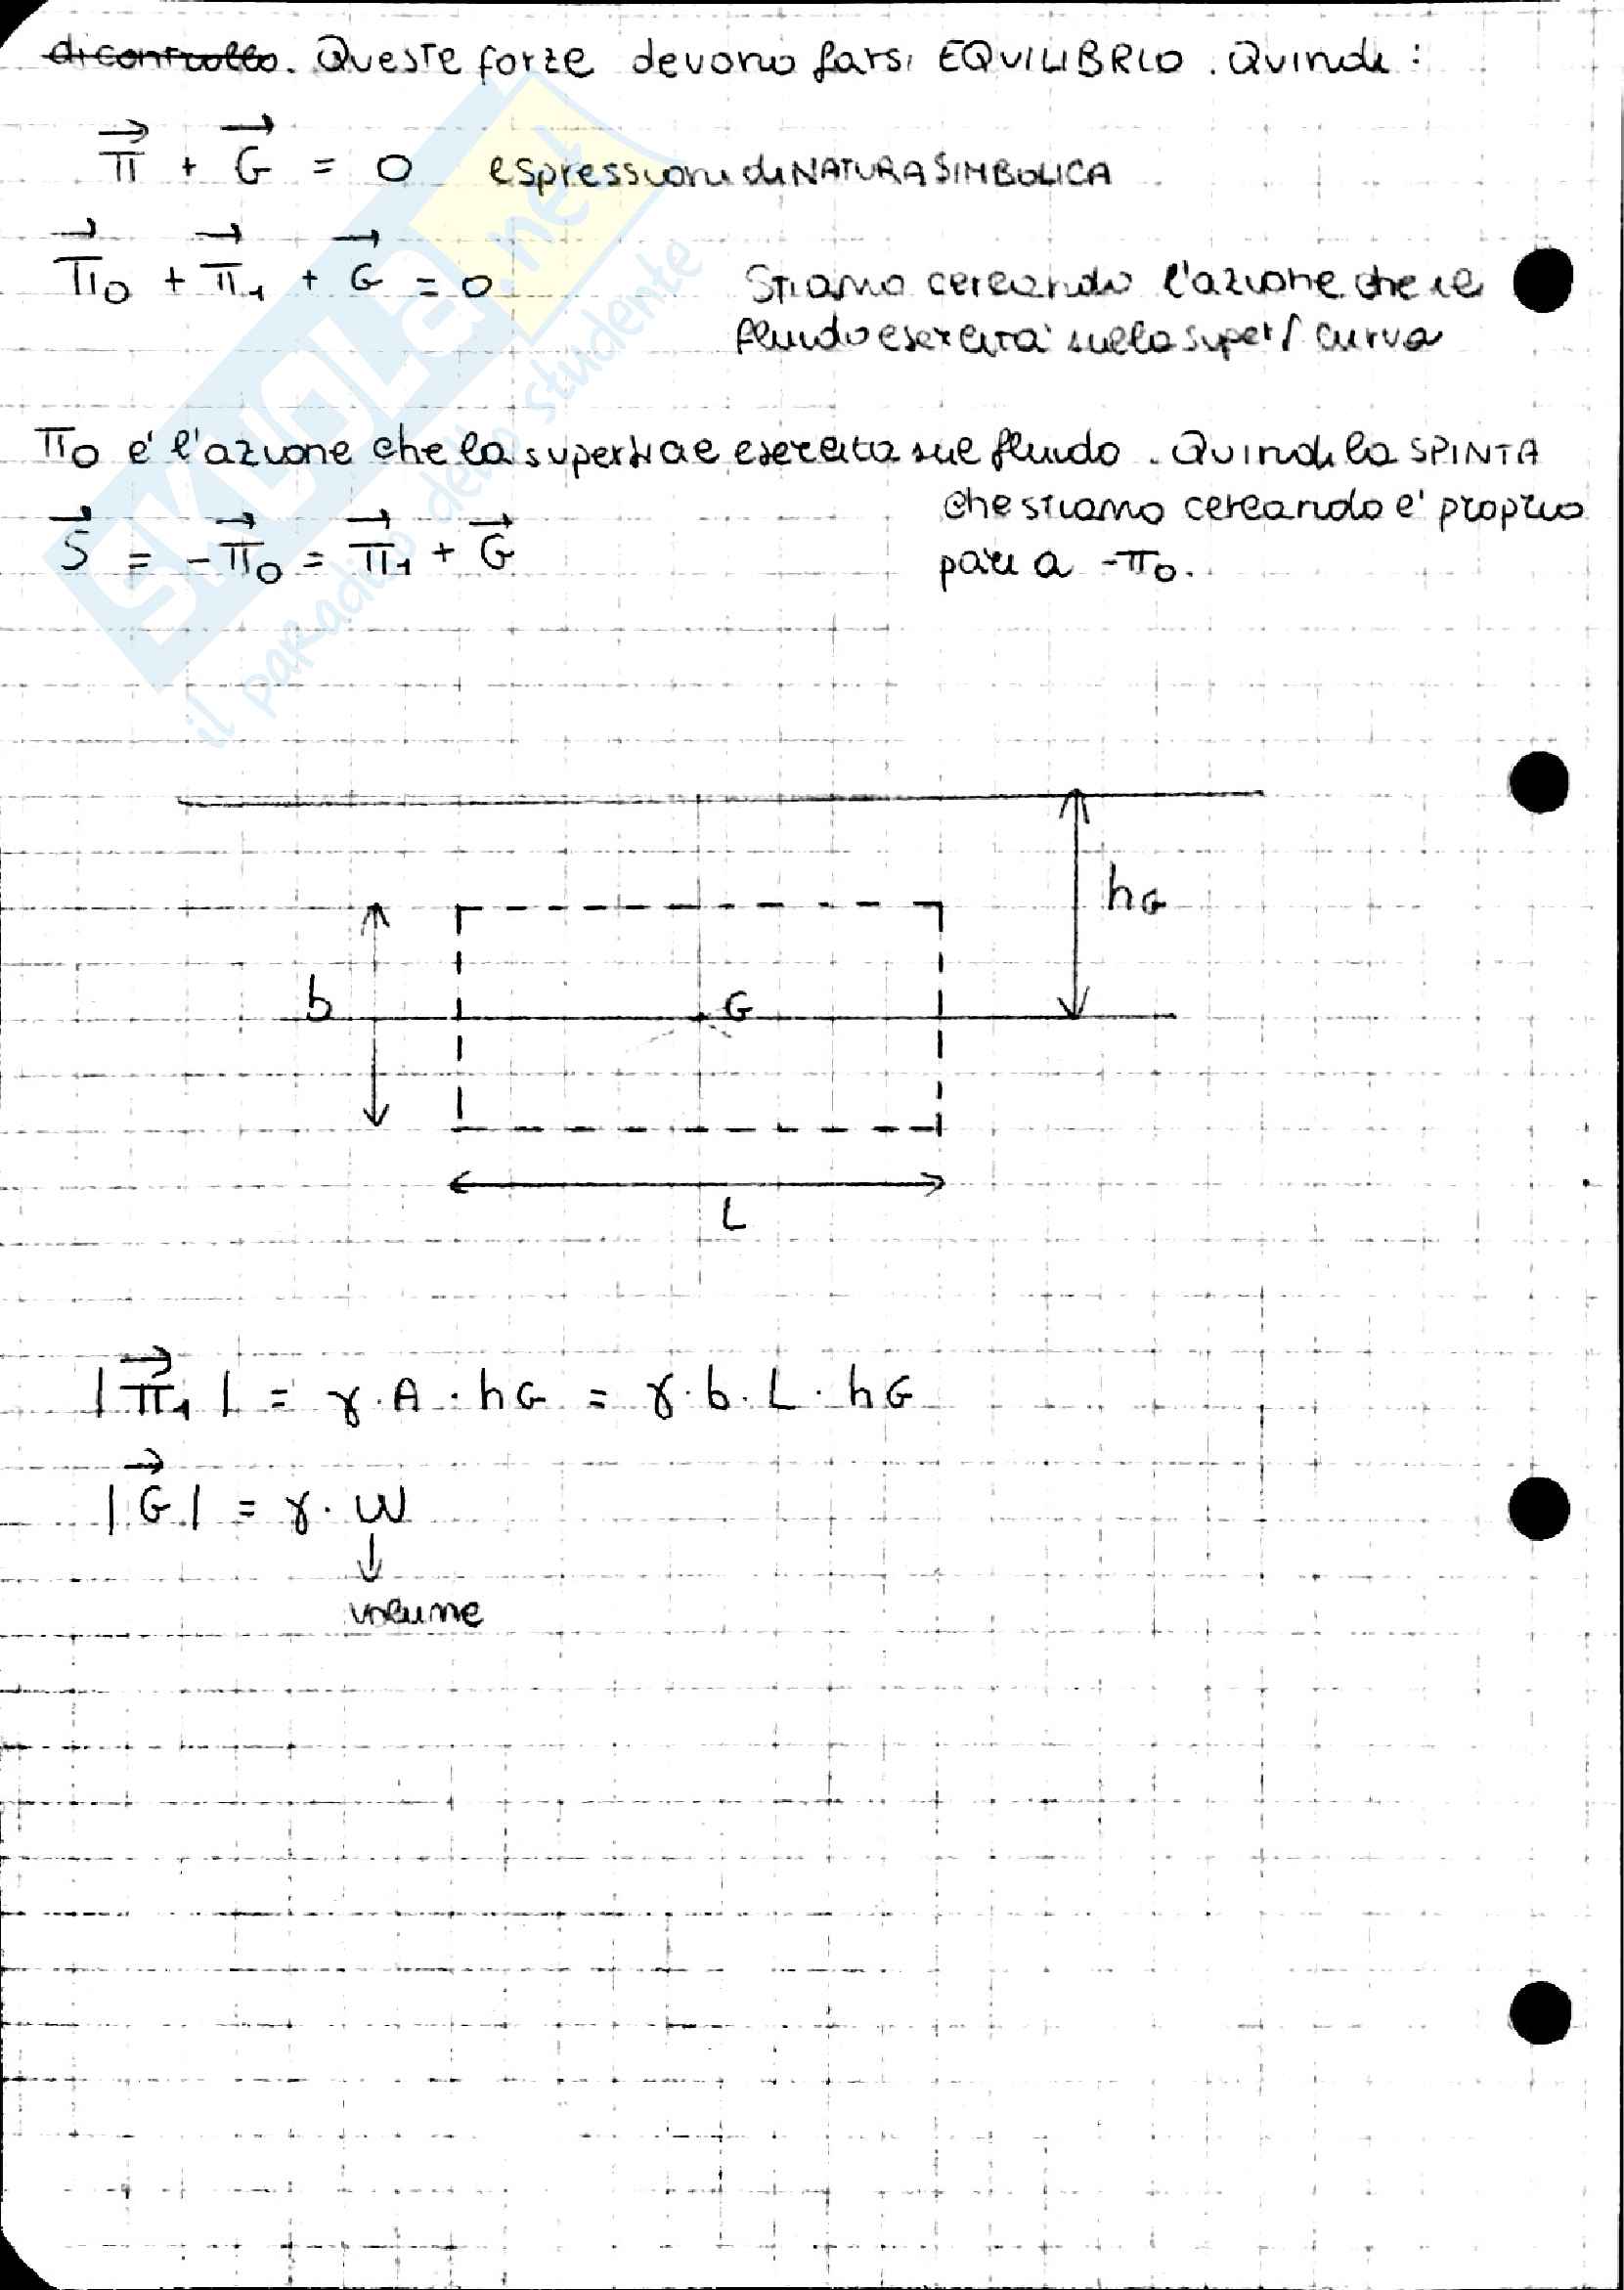 di controllo. Queste forze devono farsi EQUILIBRIO. Quindi:
π⃗ + G⃗ = 0 espressioni di NATURA SIMBOLICA
π⃗₀ + π⃗₁ + G⃗ = 0
Stiamo cercando l'azione che il
fluido esercita sulla superf/ curva
π₀ e' l'azione che la superficie esercita sul fluido. Quindi la SPINTA
che stiamo cercando e' proprio
pari a -π₀.
S⃗ = -π⃗₀ = π⃗₁ + G⃗
SKUOLA.net
il paradiso dello studente
hG
b
G
L
|π⃗₁| = γ·A·hG = γ·b·L·hG
|G⃗| = γ·W
↓
volume